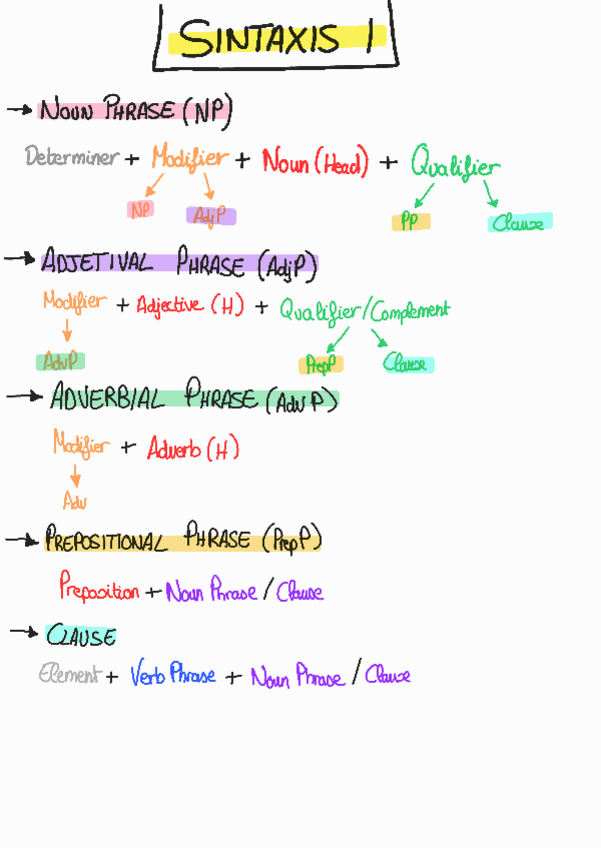 SINTAXIS 1
→ NOUN PHRASE (NP)
Determiner + Modifier + Noun (Head) + Qualifier
NP AdjP PP Clause
→ ADJETIVAL PHRASE (AdjP)
Modifier + Adjective (H) + Qualifier/Complement
AdvP PrepP Clause
→ ADVERBIAL PHRASE (AdvP)
Modifier + Adverb (H)
Adv
→ PREPOSITIONAL PHRASE (PrepP)
Preposition + Noun Phrase / Clause
→ CLAUSE
Element + Verb Phrase + Noun Phrase / Clause